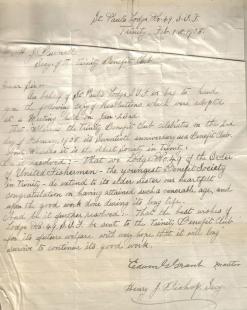 St. Pauls Lodge No. 49 S.U.F.
Trinity, Feb. 1st 1938.
Secy. of the Trinity Benefit Club
Dear Sir:-
On behalf of St. Pauls Lodge S.U.F. we beg to hand
you the following copy of Resolutions which were adopted
at a Meeting held on Jan
That Whereas the Trinity Benefit Club celebrates on the 2nd
February 1938 its anniversary as a Benefit Club.
And Whereas it is an
Be it resolved:- That we Lodge No. 49 of the Order
of United Fishermen - the youngest Benefit Society
in Trinity - do extend to its elder sister our heartfelt
congratulations on having attained such a venerable age, and
upon the good work done during its long life.
And be it further resolved:- That the best wishes of
Lodge No. 49 S.U.F. be sent to the Trinity Benefit Club
for its future welfare with our hope that it will long
survive to continue its good work.
Edwin G. Grant Master
Henry J. Bishop, Secy